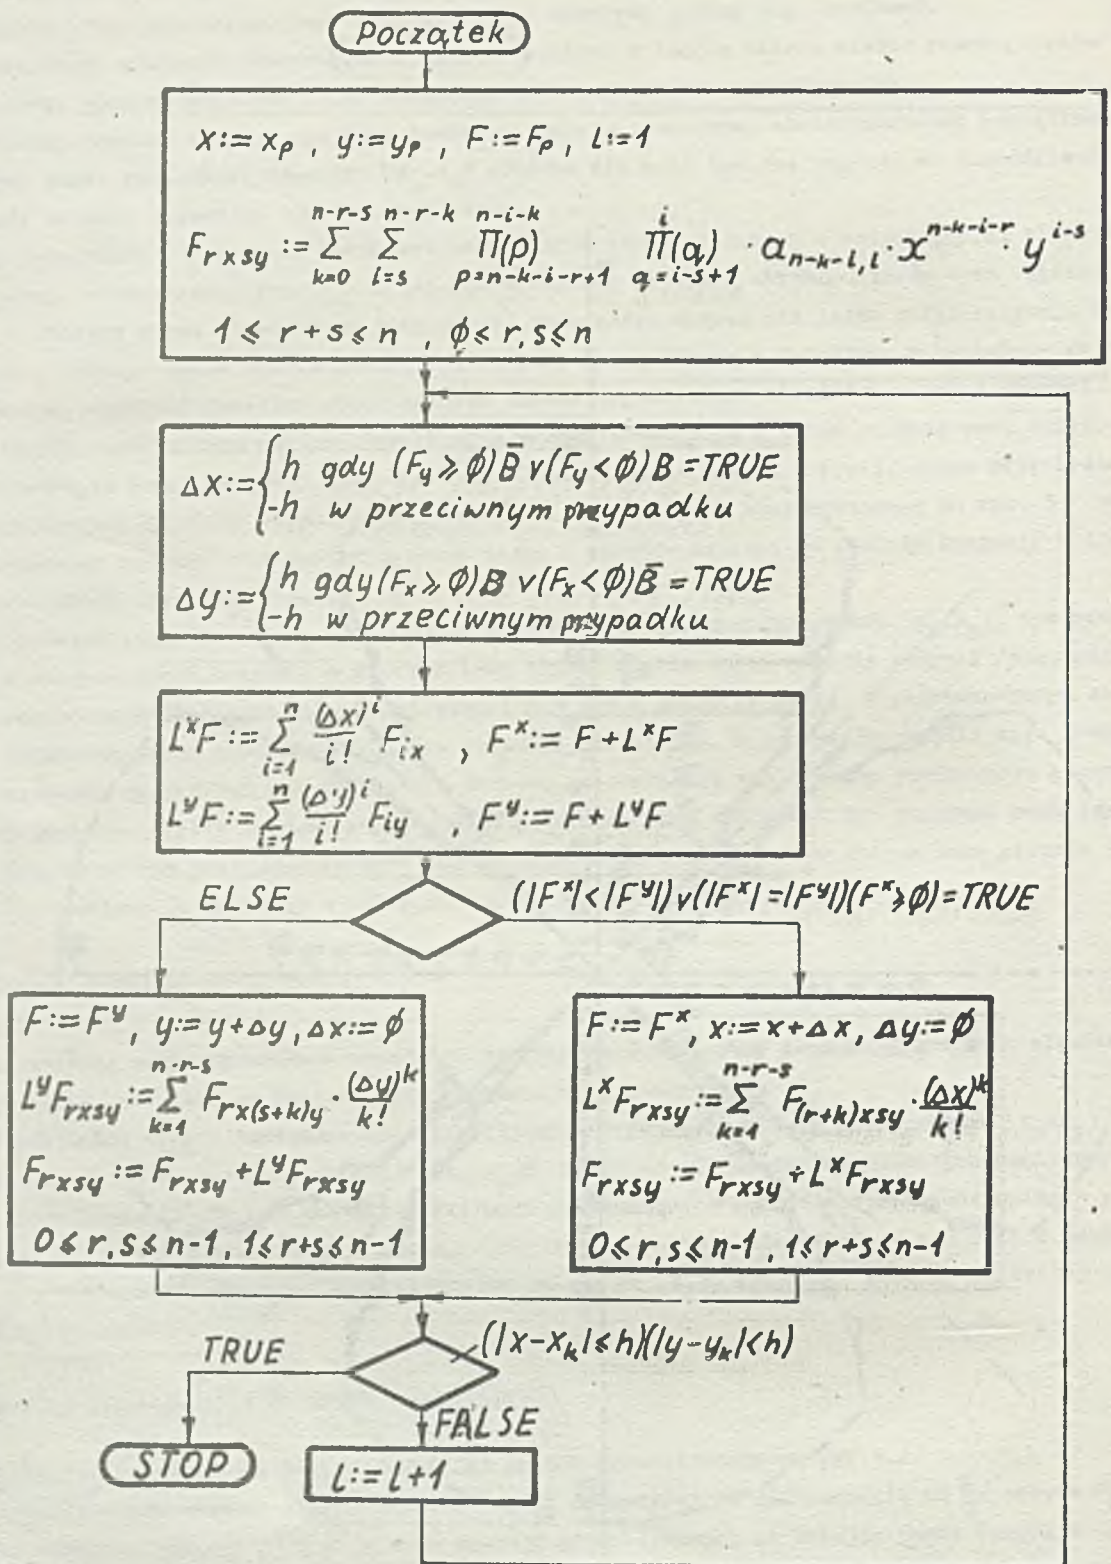 Początek
x:=x_p , y:=y_p , F:=F_p , l:=1
F_{rxsy} := \sum_{k=0}^{n-r-s} \sum_{i=s}^{n-r-k} \prod_{p=n-k-i-r+1}^{n-i-k} (p) \prod_{q=i-s+1}^{i} (q) · a_{n-k-i,i} · x^{n-k-i-r} · y^{i-s}
1 ≤ r+s ≤ n , ϕ ≤ r,s ≤ n
Δx:= { h gdy (F_y ≥ ϕ)B̄ v(F_y < ϕ)B = TRUE
-h w przeciwnym przypadku
Δy:= { h gdy (F_x ≥ ϕ)B v(F_x < ϕ)B̄ = TRUE
-h w przeciwnym przypadku
L^xF := \sum_{i=1}^{n} \frac{(Δx)^i}{i!} F_{ix} , F^x := F + L^xF
L^yF := \sum_{i=1}^{n} \frac{(Δy)^i}{i!} F_{iy} , F^y := F + L^yF
ELSE
(|F^x| < |F^y|) v(|F^x| = |F^y|)(F^x ≥ ϕ) = TRUE
F:= F^y, y:= y+Δy, Δx:= ϕ
L^yF_{rxsy} := \sum_{k=1}^{n-r-s} F_{rx(s+k)y} · \frac{(Δy)^k}{k!}
F_{rxsy} := F_{rxsy} + L^yF_{rxsy}
0 ≤ r,s ≤ n-1, 1 ≤ r+s ≤ n-1
F:= F^x, x:= x+Δx, Δy:= ϕ
L^xF_{rxsy} := \sum_{k=1}^{n-r-s} F_{(r+k)xsy} · \frac{(Δx)^k}{k!}
F_{rxsy} := F_{rxsy} + L^xF_{rxsy}
0 ≤ r,s ≤ n-1 , 1 ≤ r+s ≤ n-1
TRUE
(|x-x_k| ≤ h)(|y-y_k| < h)
FALSE
STOP
l:= l+1